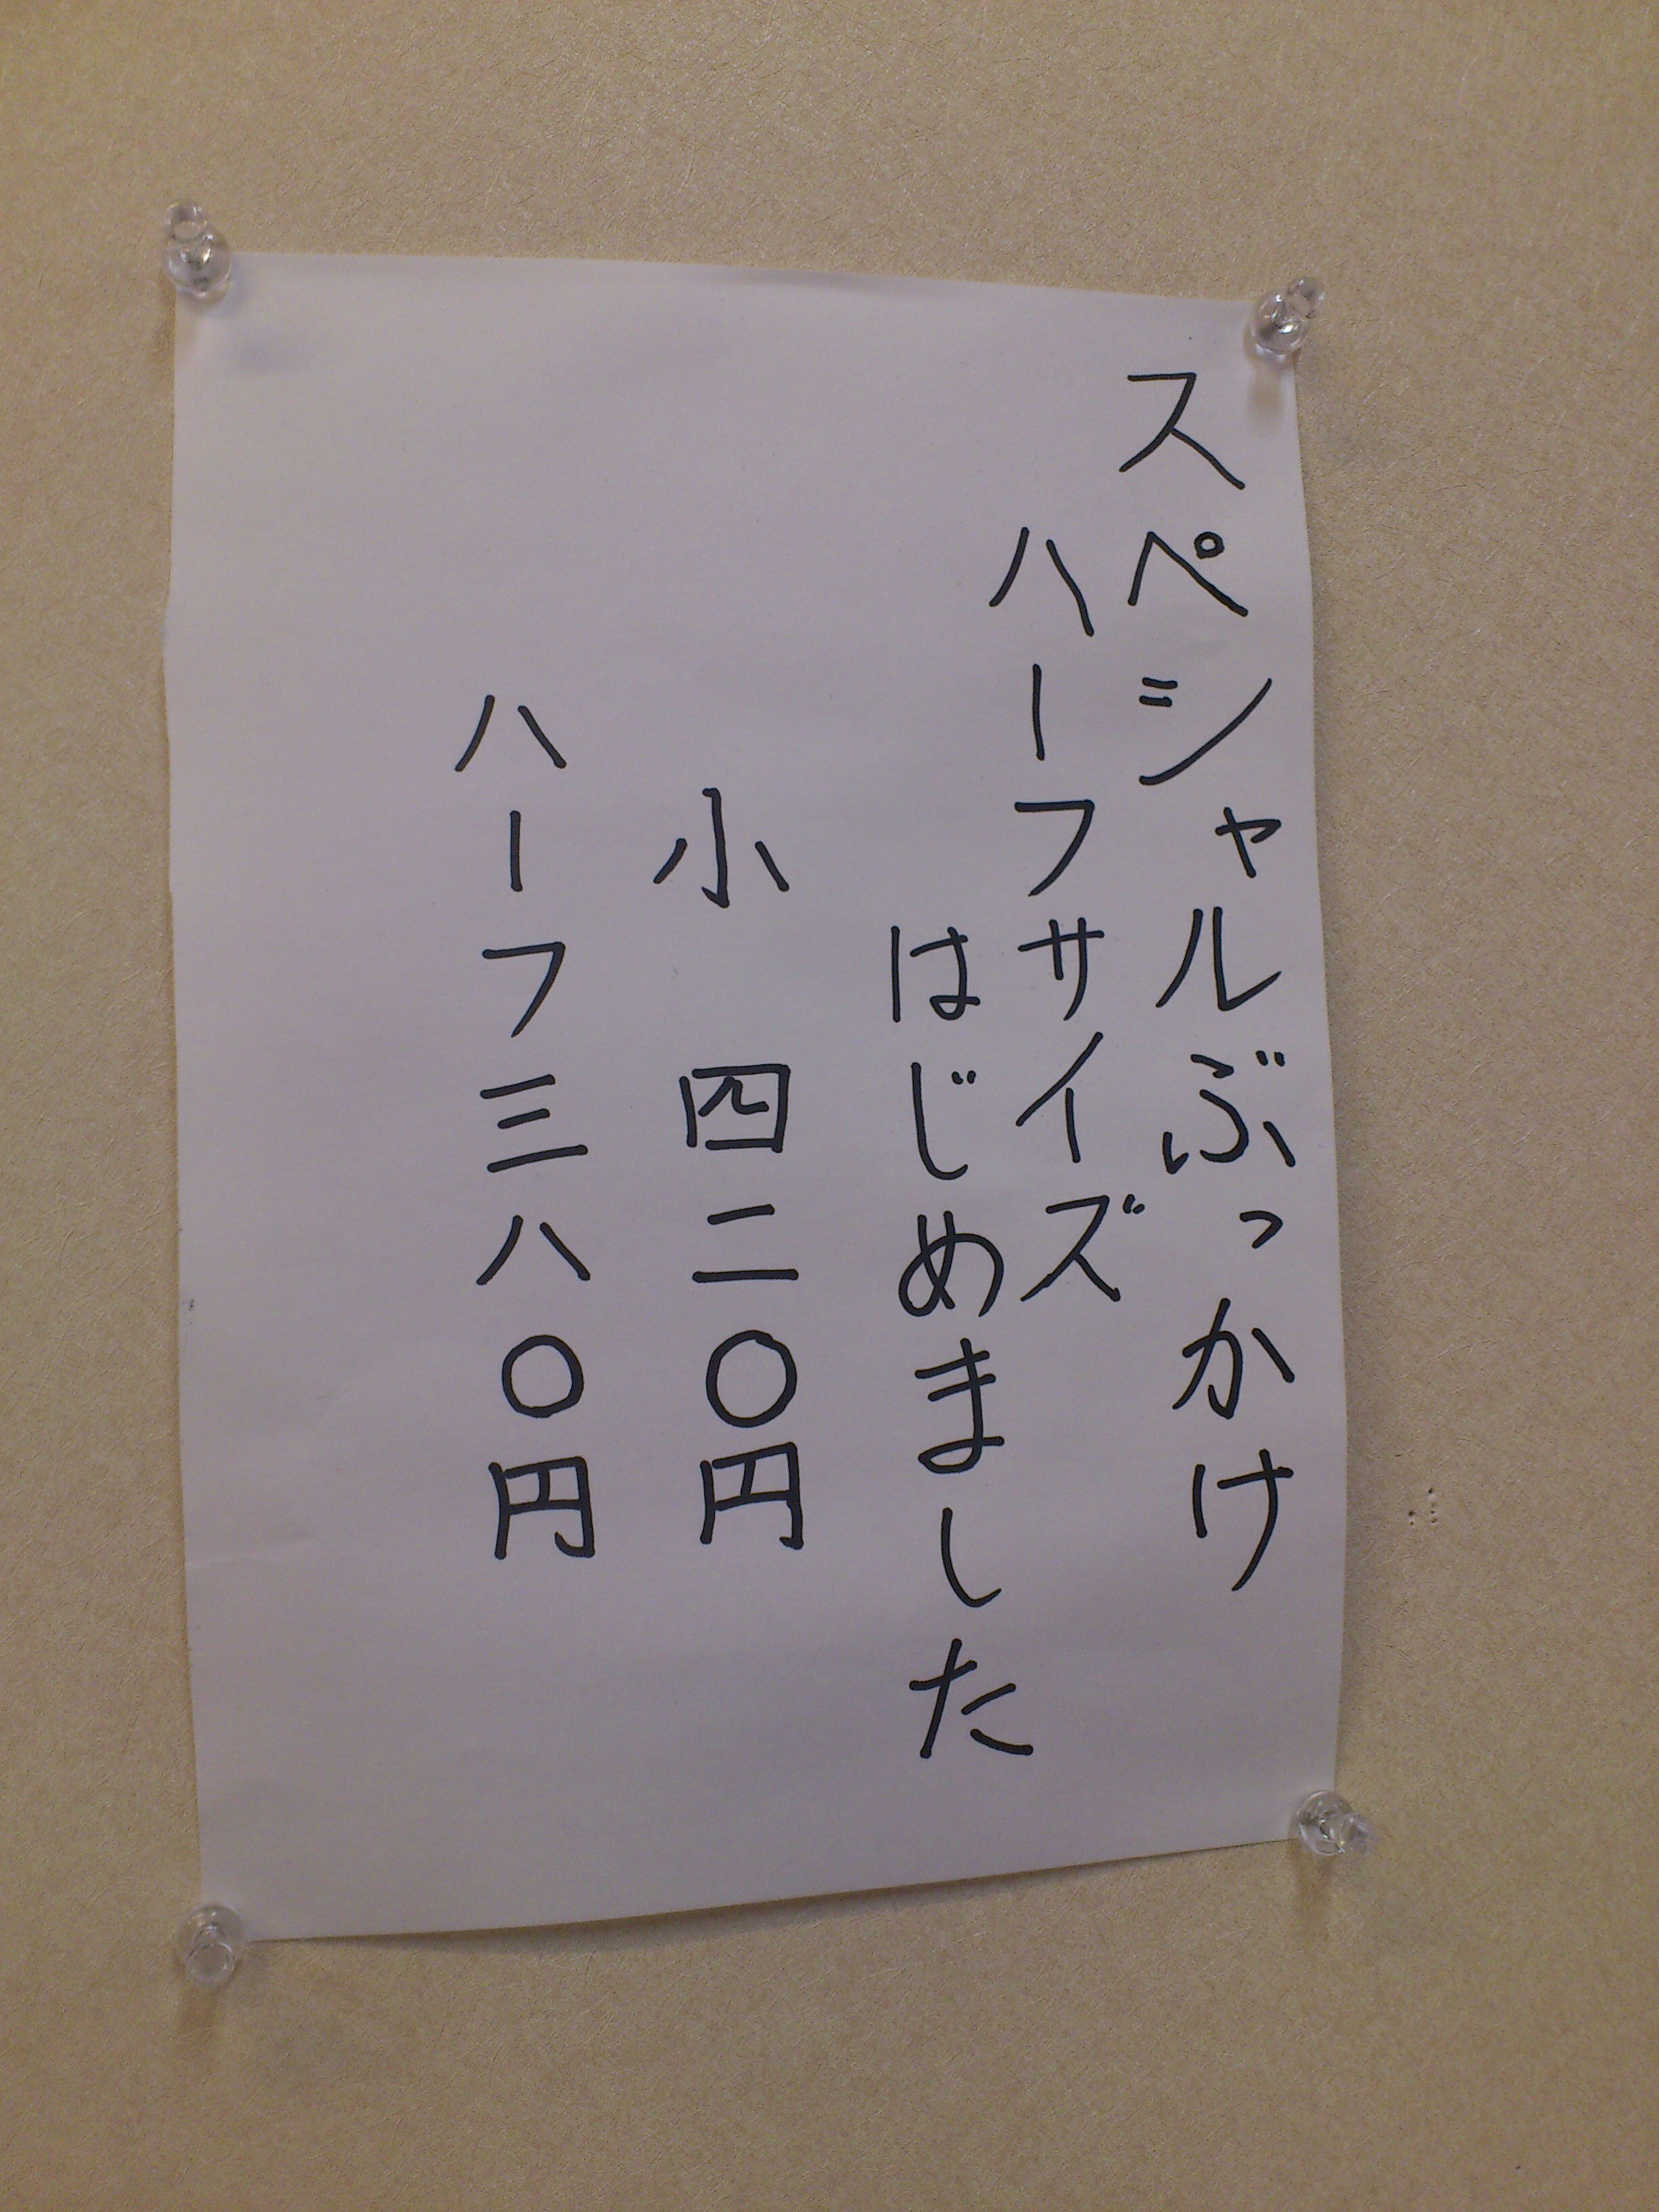 スペシャルぶっかけ
ハーフサイズ
はじめました
小 四二〇円
ハーフ三八〇円